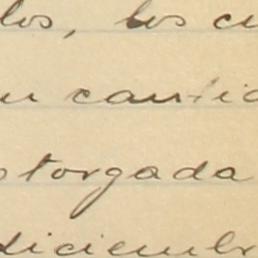 los, los cu
n cantid
otorgada
diciembr